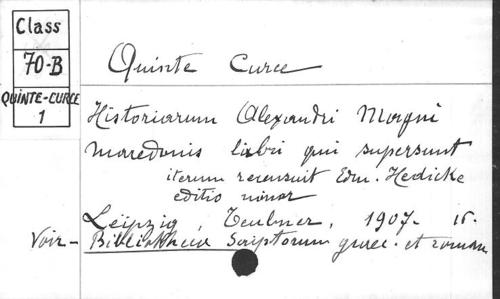 Class
70-B
QUINTE-CURCE
1
Quinte Curce
Historiarum Alexandri Magni
Macedonis libri qui supersunt
iterum recensuit Edm. Hedicke
editio minor
Leipzig, Teubner, 1907. in.
Voir - Bibliotheca Scriptorum graec. et roman